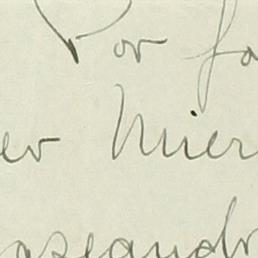 Por fa
er mier
assandr